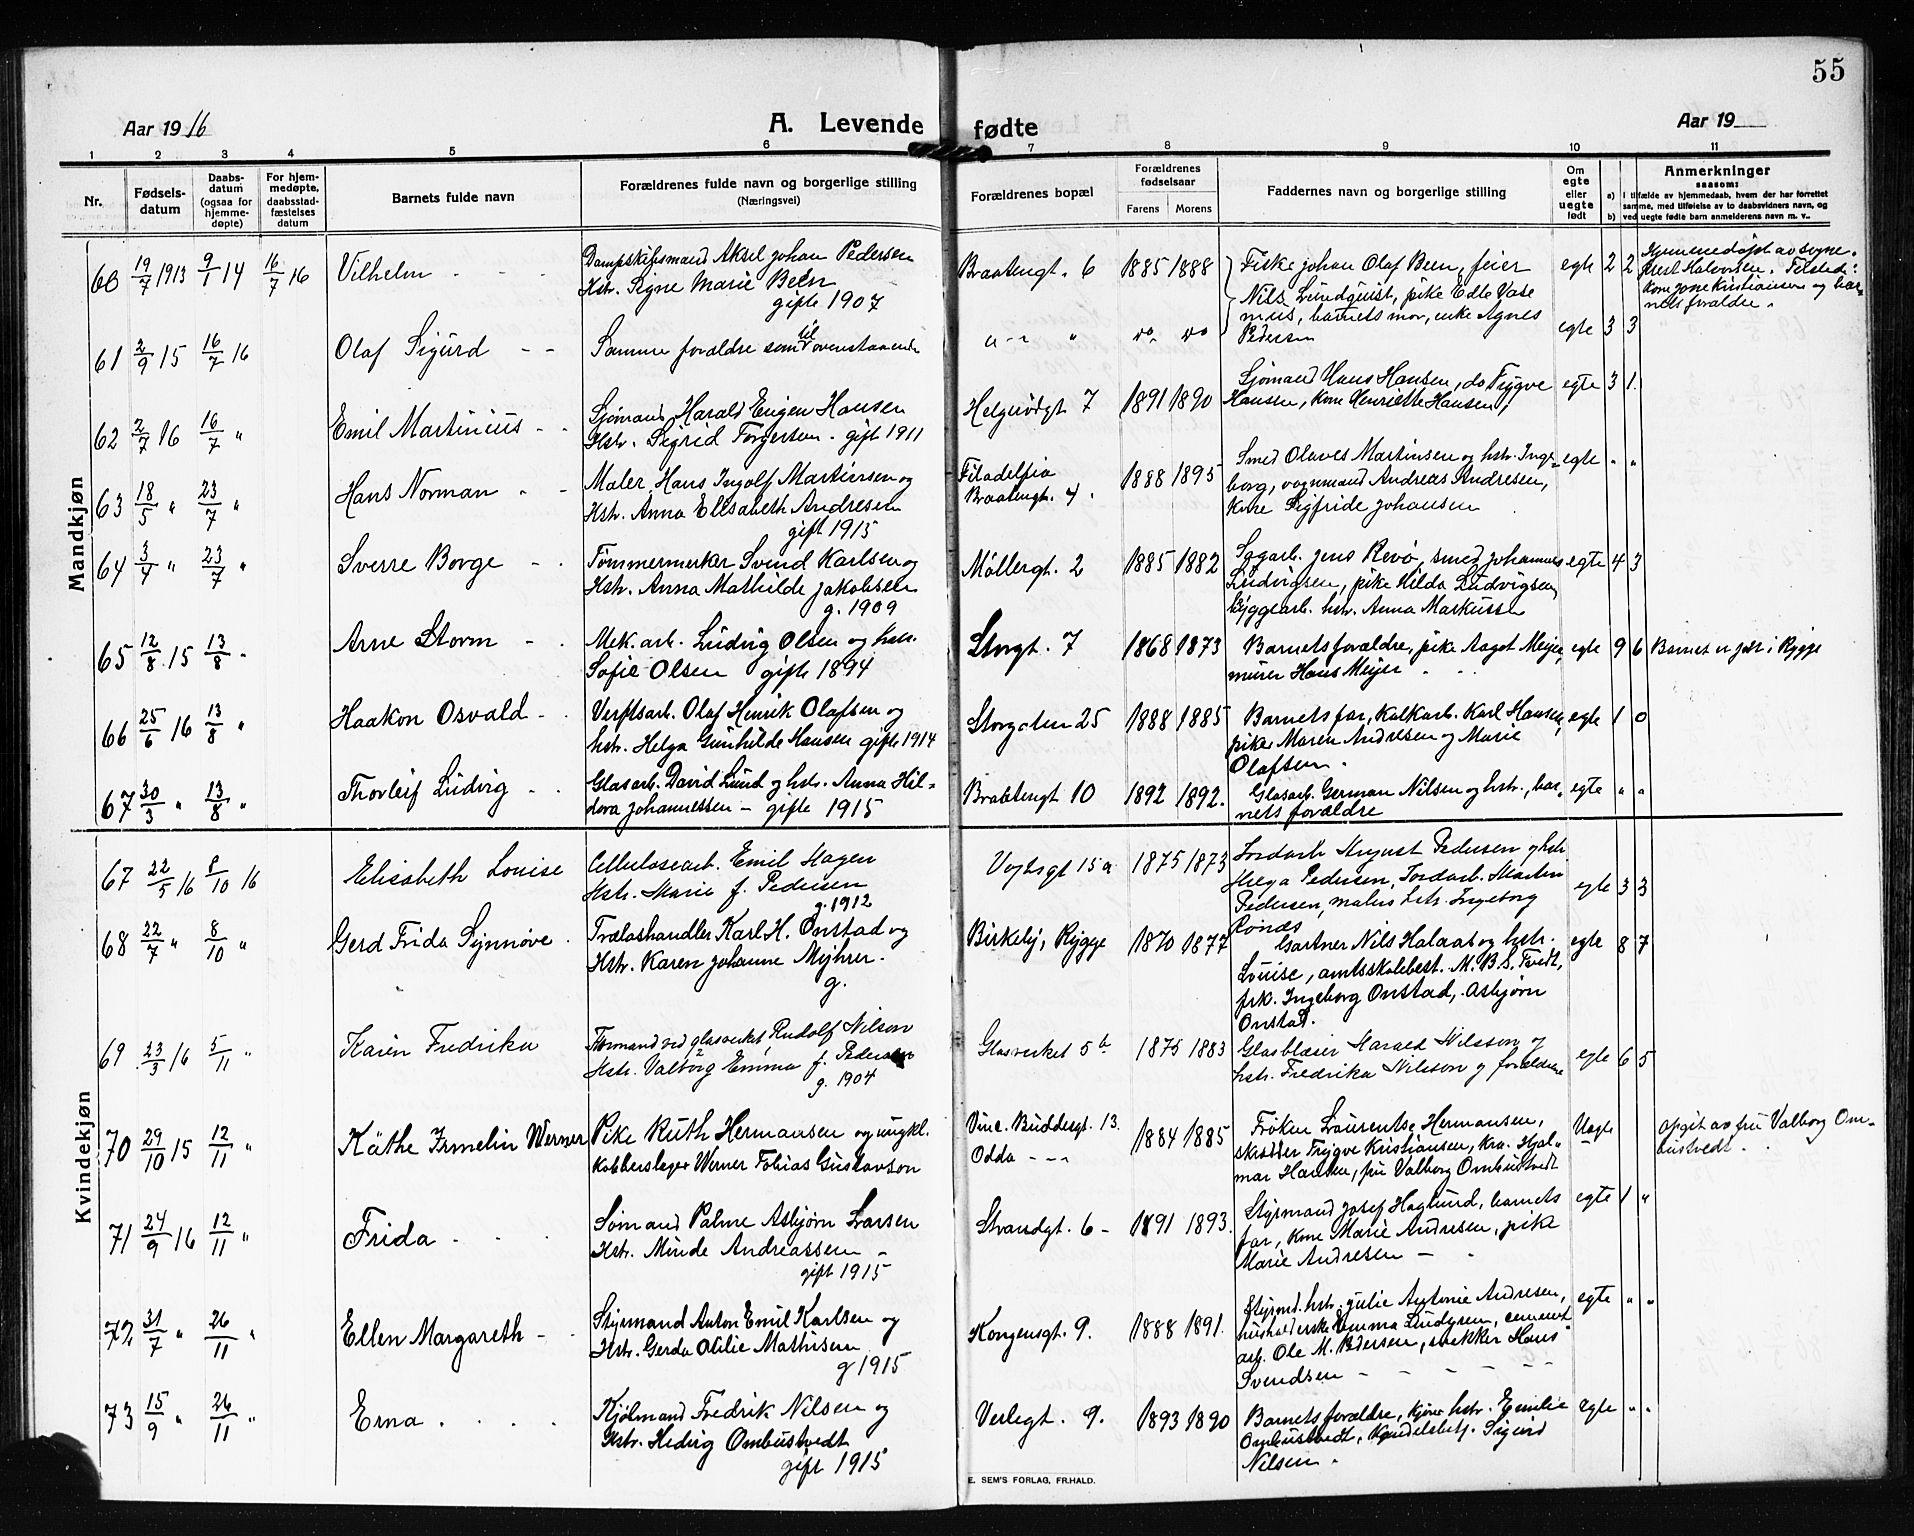 55
Aar 1916
A. Levende fødte
Aar 19
1 2 3 4 5 6 7 8 9 10 11
Nr.
Fødsels-
datum
Daabs-
datum
(ogsaa for
hjemme-
døpte)
For hjem-
medøpte,
daabsstad-
fæstelses
datum
Barnets fulde navn
Forældrenes fulde navn og borgerlige stilling
(Næringsvei)
Forældrenes bopæl
Forældrenes
fødselsaar
Farens Morens
Faddernes navn og borgerlige stilling
Om
egte
eller
uegte
født
a)
b)
Anmerkninger
saasom:
I tilfælde av hjemmedaab, hvem der har forrettet
samme, med tilføielse av to daabsvidners navn, og
ved uegte fødte barn anmelderens navn m. v..
Mandkjøn
60 19/7 1913 9/1 14 16/7 16 Vilhelm
Dampskibsmand Aksel Johan Pedersen
Hstr. Signe Marie Been
gifte 1907
Braatengt. 6 1885 1888
Fiske Johan Olaf Been, feier
Nils Lundquist, pike Edle Vase
mus, barnets mor, enke Agnes
Pedersen
egte 2 2
Hjemmedøpt av sogne-
prest Halvorsen. Tilstede:
kone Jone Kristiansen og bar-
nets forældre.
61 2/9 15 16/7 16 Olaf Sigurd
Samme forældre som til ovenstaaende
" " do do egte 3 3
62 2/7 16 16/7 " Emil Martinius
Sjømand Harald Eugen Hansen
Hstr. Sigrid Torgersen. gift 1911
Helgerødgt. 7 1891 1890
Sjømand Hans Hansen, do Trygve
Hansen, kone Henriette Hansen,
egte 3 1.
63 18/5 " 23/7 " Hans Norman
Maler Hans Ingolf Martinsen og
Hstr. Anna Elisabeth Andresen
gift 1915
Filadelfia
Braatengt. 4. 1888 1895
Smed Olaves Martinsen og hstr. Inge-
borg, vognmand Andreas Andresen,
kone Sigfride Johansen
egte " "
64 3/4 " 23/7 " Sverre Borge
Tømmermerker Svend Karlsen og
Hstr. Anna Mathilde Jakobsen
g. 1909
Møllergt. 2 1885 1882
Sagarb. Jens Revø, smed Johannes
Ludvigsen, pike Hilda Ludvigsen
byggearb. hstr. Anna Markussen
egte 4 3
65 12/8 15 13/8 " Arne Storm
Mek. arb. Ludvig Olsen og hstr.
Sofie Olsen gifte 1894
Storgt. 7 1868 1873
Barnets forældre, pike Aagot Meyer,
murer Hans Meyer
egte 9 6 Barnet er født i Rygge
66 25/6 16 13/8 " Haakon Osvald
Verftsarb. Olaf Henrik Olafsen og
hstr. Helga Gunhilde Hansen gifte 1914
Storgaten 25 1888 1885
Barnets far, kalkarb. Karl Hansen,
pike Maren Andresen og Marie
Olafsen.
egte 1 0
67 30/3 " 13/8 " Thorleif Ludvig
Glasarb. David Lund og hstr. Anna Hil-
dora Johannessen - gifte 1915
Braatengt 10 1892 1892.
Glasarb. German Nilsen og hstr., bar-
nets forældre
egte " "
Kvindekjøn
67 22/5 16 8/10 16 Elisabeth Louise
Cellulosearb. Emil Hagen
Hstr. Marie f. Pedersen
g. 1912
Vogtsgt 15a 1875 1873
Jordarb August Pedersen og hstr
Helga Pedersen, Jordarb. Martin
Pedersen, malers hstr. Ingeborg
Rønes
egte 3 3
68 22/7 " 8/10 " Gerd Frida Synnøve
Trælashandler Karl H. Onstad og
Hstr. Karen Johanne Myhrer.
g.
Birkely, Rygge 1870 1877
Gartner Nils Halaas og hstr.
Louise, amtsskolebest. M. B. S. Tvedt,
frk. Ingeborg Onstad, Asbjørn
Onstad.
egte 8 7
69 23/3 16 5/11 " Karen Fredrika
Formand ved glasverket Rudolf Nilson
Hstr. Valborg Emma f. Pedersen
g. 1904
Glasverket 5b 1875 1883
Glasblæser Harald Nilsson og
hstr. Fredrika Nilsson og forældrene
egte 6 5
70 29/10 15 12/11 " Käthe Irmelin Werner
Pike Ruth Hermansen og ungkl.
kobberslager Werner Tobias Gustavson
Vinc. Buddesgt. 13.
Odda - - - 1884 1885
Frøken Laurentse Hermansen,
skrædder Trygve Kristiansen, fru Hjal-
mar Hansen, fru Valborg Ombustvedt
Uegte
opgit av fru Valborg Om-
bustvedt.
71 24/9 16 12/11 " Frida
Sømand Palme Asbjørn Larsen
Hstr. Minde Andreassen -
gift 1915
Strandgt. 6 - 1891 1893.
Styrmand Josef Haglund, barnets
far, kone Marie Andresen, pike
Marie Andresen -
egte 1 "
72 31/7 " 26/11 " Ellen Margareth
Styrmand Anton Emil Karlsen og
Hstr. Gerda Otilie Mathisen
g 1915
Kongensgt. 9. 1888 1891.
Styrmd. hstr. Julie Antonie Andresen,
husholderske Emma Lundgren, cement
arb. Ole M. Pedersen, snekker Hans
Svendsen - - - - -
egte " "
73 15/9 " 26/11 " Erna
Kjølmand Fredrik Nilsen og
Hstr. Hedvig Ombustvedt
gift 1915
Verlegt. 9. 1893 1890
Barnets forældre, kjører hstr. Emilie
Ombustvedt, Handelsbetj. Sigurd
Nilsen.
egte " "
E. SEM'S FORLAG, FR.HALD.